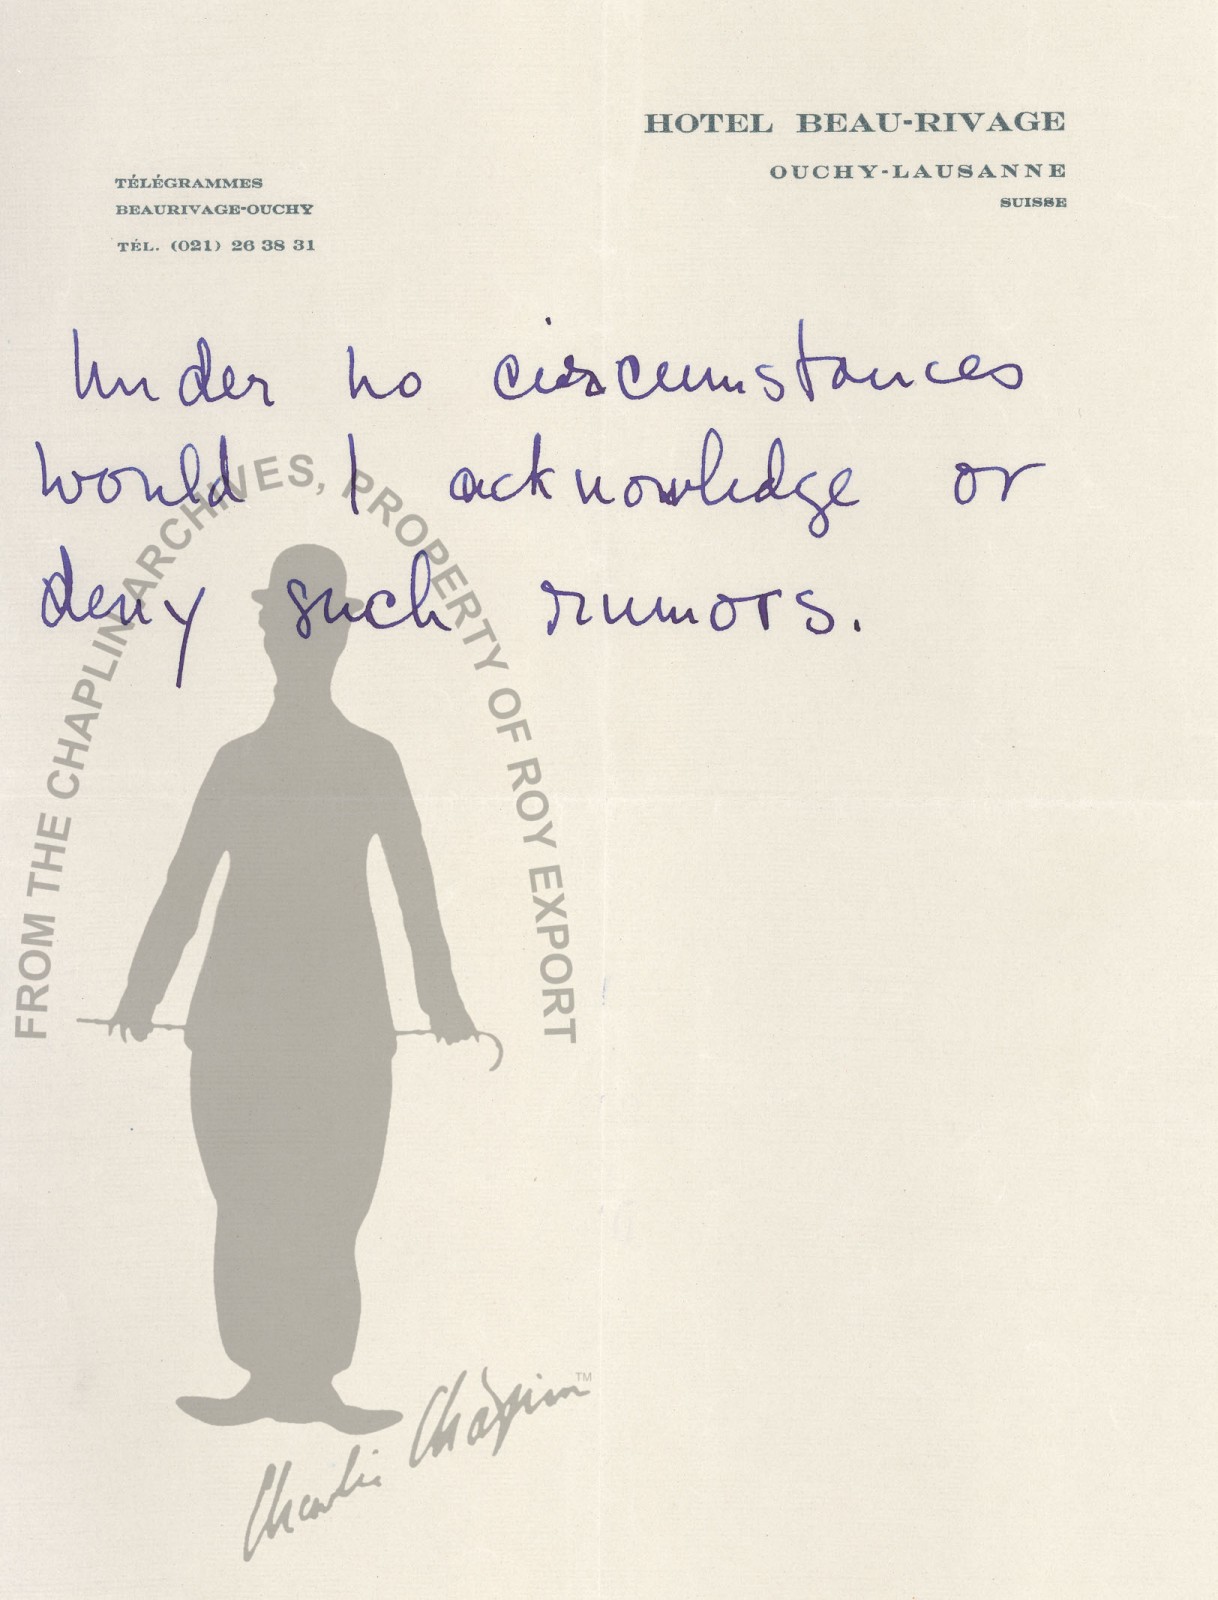 HOTEL BEAU-RIVAGE
OUCHY-LAUSANNE
SUISSE
TÉLÉGRAMMES
BEAURIVAGE-OUCHY
TÉL. (021) 26 38 31
Under no circumstances
would I acknowledge or
deny such rumors.
FROM THE CHAPLIN ARCHIVES, PROPERTY OF ROY EXPORT
Charlie Chaplin™